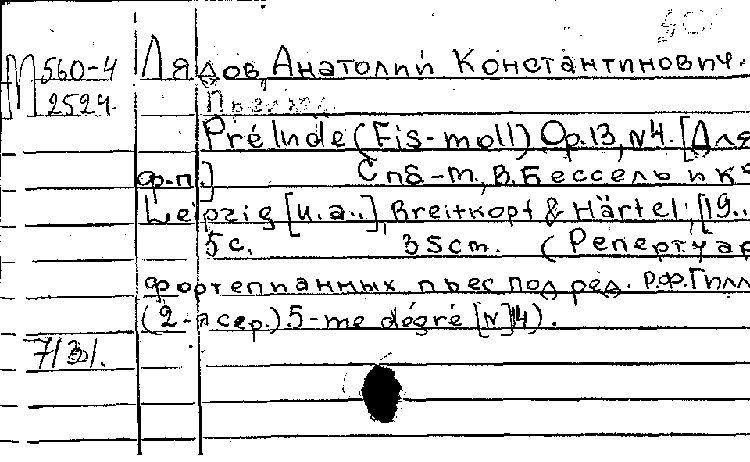 М 560-4 Лядов, Анатолий Константинович.
2524
Prélude (Fis-moll) Op.13, N4. [Для
ф.-п.] Спб-m., В. Бессель и Кº
Leipzig [u.a..], Breitkopf & Härtel, [19..
5 с. 35 cm. (Репертуар
фортепианных пьес под ред. Р.Ф. Гилл
(2-я сер.). 5-me dégré [N]14).